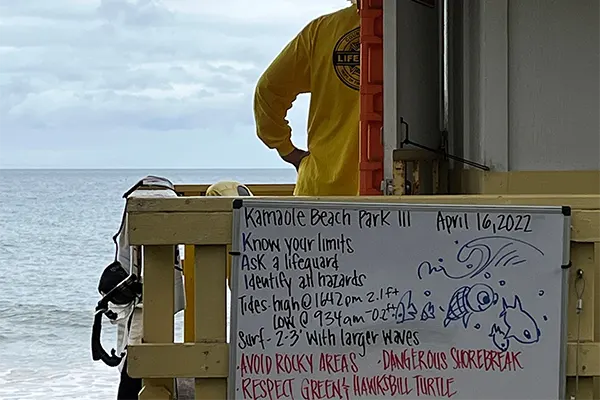 LIFE
Kamaole Beach Park III April 16, 2022
Know your limits
Ask a lifeguard
Identify all hazards
Tides- high @ 1642 pm 2.1ft
Low @ 934am -0.2ft
Surf- 2-3' with larger waves
•AVOID ROCKY AREAS •DANGEROUS SHOREBREAK
•RESPECT GREEN & HAWKSBILL TURTLE